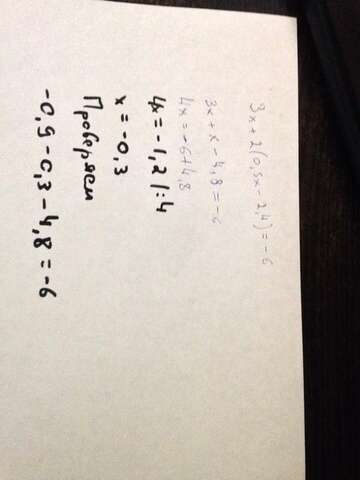 3x+2(0,5x-2,4)=-6
3x+x-4,8=-6
4x=-6+4,8
4x=-1,2/:4
x=-0,3
Проверяем
-0,9-0,3-4,8=-6